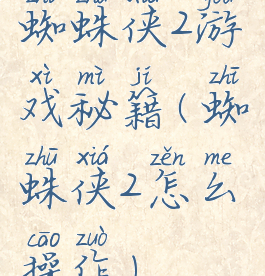 蜘蛛侠2游
xì mì jí zhī
戏秘籍(蜘
zhū xiá zěn me
蛛侠2怎么
cāo zuò
操作)